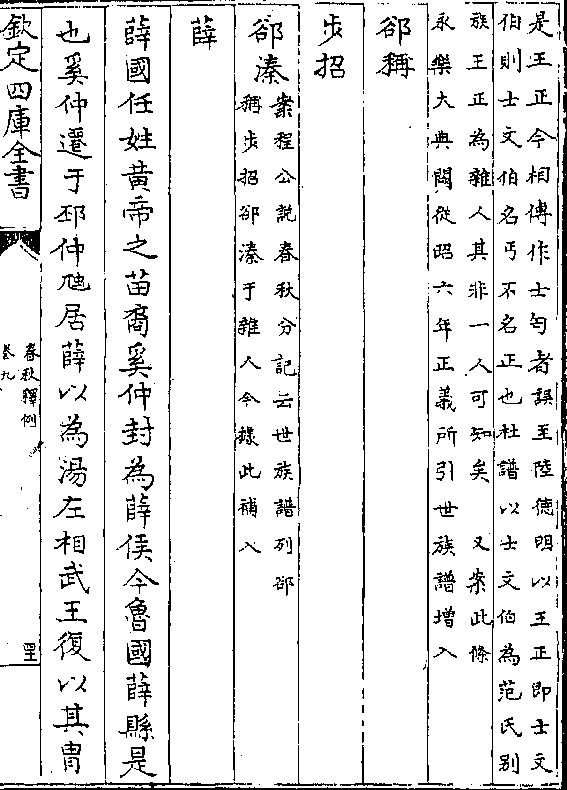 是王正今相傳作士匄者誤至陸德明以王正即士文
伯則士文伯名丐不名正也杜譜以士文伯為范氏别
族王正為雜人其非一人可知矣 又案此條
永樂大典闕從昭六年正義所引世族譜增入
郤稱
步招
郤溱
案程公說春秋分記云世族譜列郤
稱步招郤溱于雜人今據此補入
薛
薛國任姓黄帝之苗裔奚仲封為薛侯今魯國薛縣是
也奚仲遷于邳仲虺居薛以為湯左相武王復以其胄
欽定四庫全書
春秋釋例
卷九